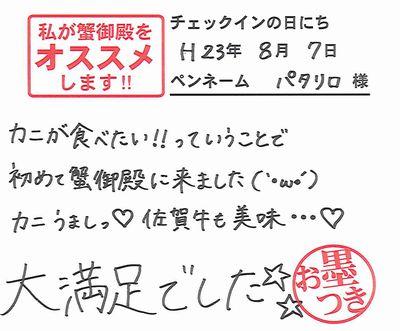 私が蟹御殿を
オススメ
します!!
チェックインの日にち
H23年 8月 7日
ペンネーム パタリロ 様
カニが食べたい!!っていうことで
初めて蟹御殿に来ました(`・ω・´)
カニうましっ♡佐賀牛も美味…♡
大満足でした☆☆
お墨つき